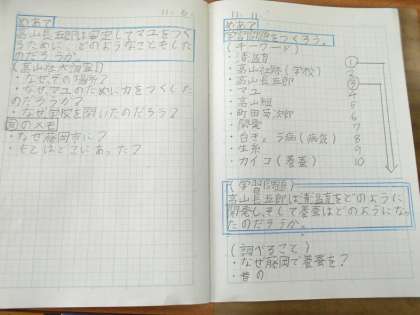 めあて
高山長五郎は安定してマユをつく
うために、どのようなことをした
のだろうか。
(高山社大調査!)
・なぜその場所?
・なぜマユのため力をつくした
のだろうか?
・なぜ学校を開いたのだろう?
町のメモ
・なぜ藤岡市に?
・もとはどこにあった?
11. 11.
めあて
学習問題をつくろう。
(キーワード)
・清温育 1
・高山社跡(学校) 2
・高山長五郎 3
・マユ 4
・高山組 5
・町田菊次郎 6
・開発 7
・白きょう病(病気) 8
・生糸 9
・カイコ(養蚕) 10
(学習問題)
高山長五郎は清温育をどのように
開発し、そして養蚕はどのようになっ
たのだろうか。
(調べること)
・なぜ藤岡で養蚕を?
・昔の